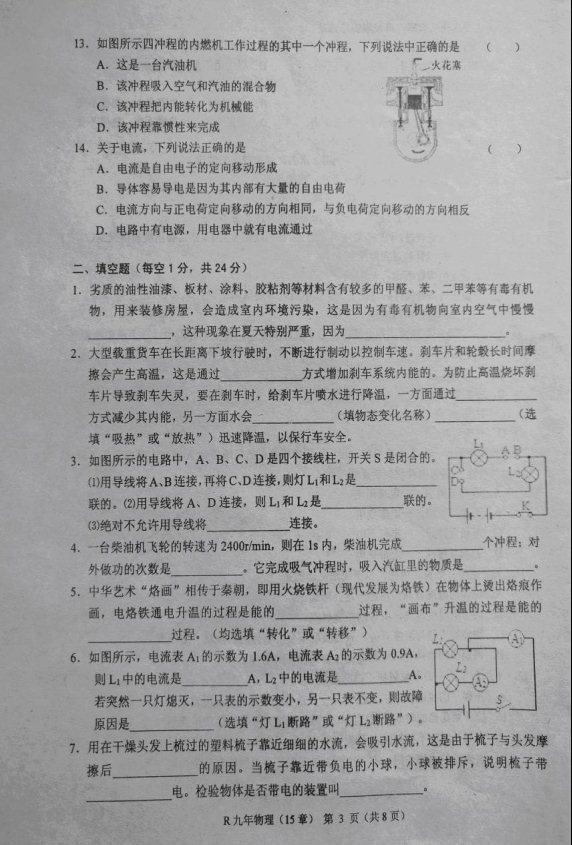 13．如图所示四冲程的内燃机工作过程的其中一个冲程，下列说法中正确的是 （ ）
A．这是一台汽油机
火花塞
B．该冲程吸入空气和汽油的混合物
C．该冲程把内能转化为机械能
D．该冲程靠惯性来完成
14．关于电流，下列说法正确的是 （ ）
A．电流是自由电子的定向移动形成
B．导体容易导电是因为其内部有大量的自由电荷
C．电流方向与正电荷定向移动的方向相同，与负电荷定向移动的方向相反
D．电路中有电源，用电器中就有电流通过
二、填空题（每空1分，共24分）
1．劣质的油性油漆、板材、涂料、胶粘剂等材料含有较多的甲醛、苯、二甲苯等有毒有机
物，用来装修房屋，会造成室内环境污染，这是因为有毒有机物向室内空气中慢慢
____________，这种现象在夏天特别严重，因为________________________。
2．大型载重货车在长距离下坡行驶时，不断进行制动以控制车速。刹车片和轮毂长时间摩
擦会产生高温，这是通过____________方式增加刹车系统内能的。为防止高温烧坏刹
车片导致刹车失灵，要在刹车时，给刹车片喷水进行降温，一方面通过____________
方式减少其内能，另一方面水会____________（填物态变化名称）____________（选
填“吸热”或“放热”）迅速降温，以保行车安全。
3．如图所示的电路中，A、B、C、D是四个接线柱，开关S是闭合的。
⑴用导线将A、B连接，再将C、D连接，则灯L₁和L₂是____________
联的。⑵用导线将A、D连接，则L₁和L₂是____________联的。
⑶绝对不允许用导线将____________连接。
L₁
A B
C
D
L₂
K
4．一台柴油机飞轮的转速为2400r/min，则在1s内，柴油机完成____________个冲程；对
外做功的次数是____________。它完成吸气冲程时，吸入汽缸里的物质是____________。
5．中华艺术“烙画”相传于秦朝，即用火烧铁杆（现代发展为烙铁）在物体上烫出烙痕作
画，电烙铁通电升温的过程是能的____________过程，“画布”升温的过程是能的
____________过程。（均选填“转化”或“转移”）
6．如图所示，电流表A₁的示数为1.6A，电流表A₂的示数为0.9A，
则L₁中的电流是____________A，L₂中的电流是____________A。
若突然一只灯熄灭，一只表的示数变小，另一只表不变，则故障
原因是____________（选填“灯L₁断路”或“灯L₂断路”）。
L₁
A₁
L₂
A₂
S
7．用在干燥头发上梳过的塑料梳子靠近细细的水流，会吸引水流，这是由于梳子与头发摩
擦后____________的原因。当梳子靠近带负电的小球，小球被排斥，说明梳子带
____________电。检验物体是否带电的装置叫____________。
R九年物理（15章） 第 3 页（共8页）